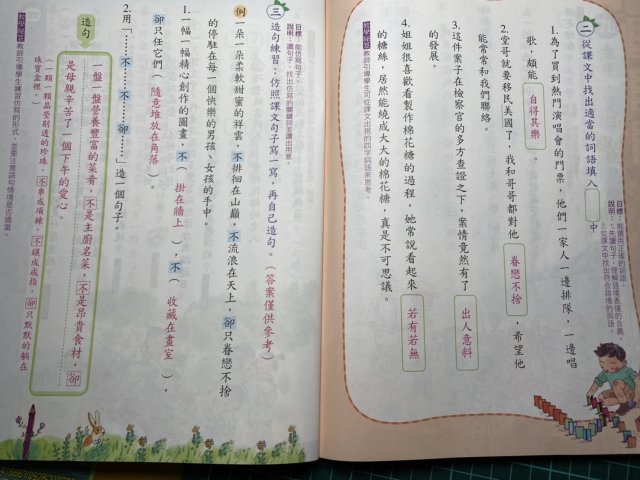 二 從課文中找出適當的詞語填入 中
目標：能選用正確的詞語。
說明：1.先讀句子，理解語境表達的含義。
2.從課文中找出符合語境的詞語。
1.為了買到熱門演唱會的門票，他們一家人一邊排隊，一邊唱
歌，頗能 自得其樂 。
2.堂哥就要移民美國了，我和哥哥都對他 眷戀不捨 ，希望他
能常常和我們聯絡。
3.這件案子在檢察官的多方查證之下，案情竟然有了 出人意料
的發展。
4.姐姐很喜歡看製作棉花糖的過程，她常說看起來 若有若無
的糖絲，居然能繞成大大的棉花糖，真是不可思議。
教師引導學生可從課文出現的四字詞語來思考。
目標：能仿寫句子。
說明：讀句子，找出仿寫的關鍵詞並讀出用意。
三 造句練習：仿照課文句子寫一寫，再自己造句。（答案僅供參考）
例 一朵一朵柔軟甜蜜的祥雲，不徘徊在山巔，不流浪在天上，卻只眷戀不捨
的停駐在每一個快樂的男孩、女孩的手中。
1.一幅一幅精心創作的圖畫，不（ 掛在牆上 ），不（ 收藏在畫室 ），
卻只任它們（ 隨意堆放在角落 ）。
2.用「……不……不……卻……」造一個句子。
造句
一盤一盤營養豐富的菜肴，不是主廚名菜，不是昂貴食材，卻
是母親辛苦了一個下午的愛心。
教師引導學生練習仿寫的形式，並要注意語句情境是否適當。
（一顆一顆晶瑩剔透的珍珠，不串成項鍊，不鑲成戒指，卻只默默的躺在
珠寶盒裡。）